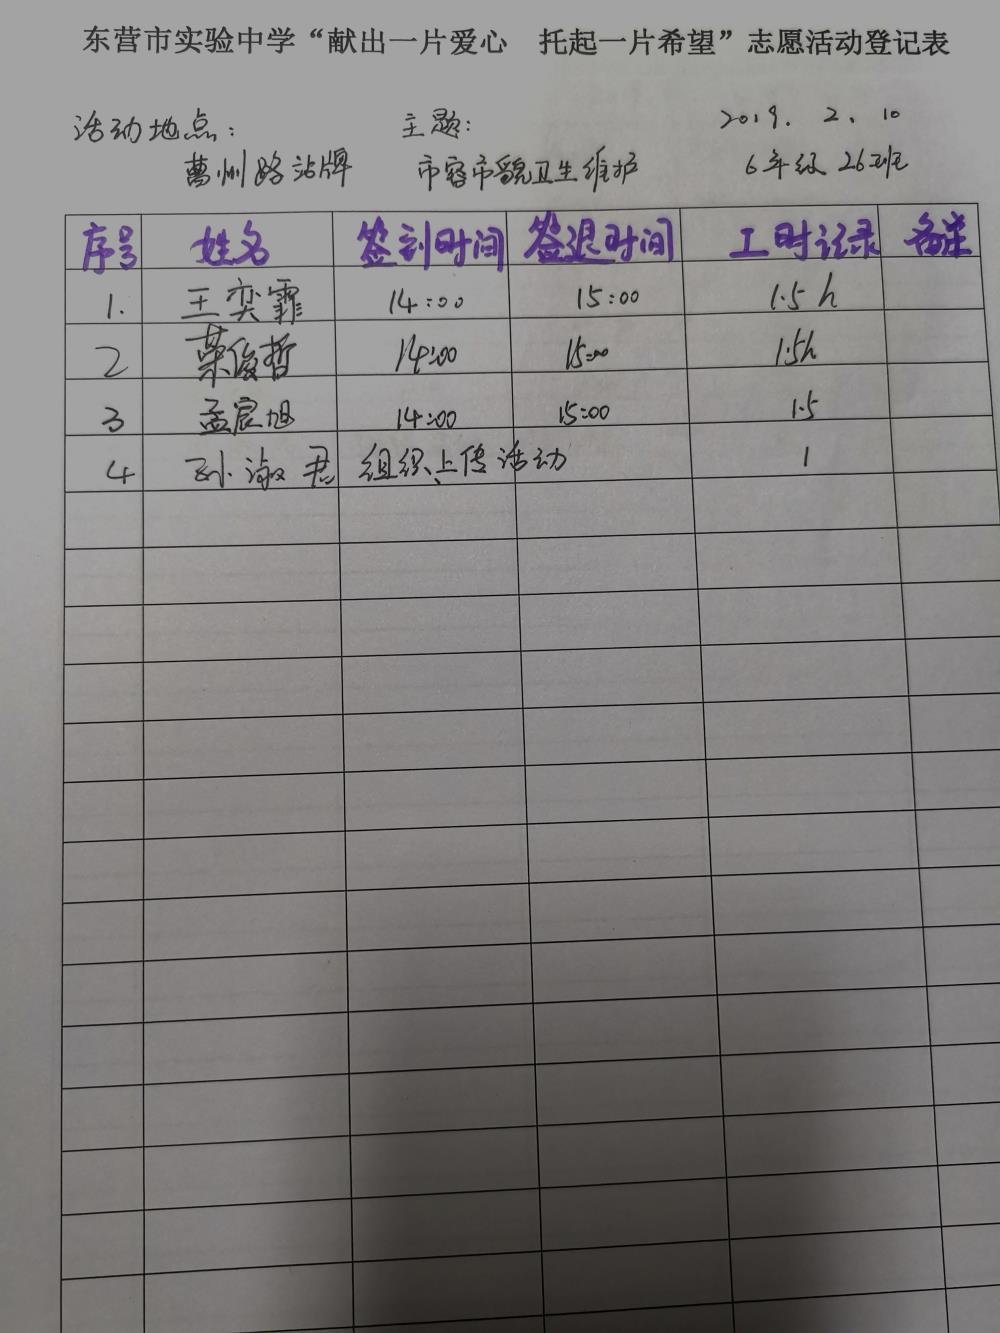 东营市实验中学“献出一片爱心 托起一片希望”志愿活动登记表
活动地点： 主题： 2019. 2. 10
曹州路站牌 市容市貌卫生维护 6年级26班
序号 姓名 签到时间 签退时间 工时记录 备注
1. 王奕霏 14:00 15:00 1.5h
2 荣俊哲 14:00 15:00 1.5h
3 孟宸旭 14:00 15:00 1.5
4 孙淑君 组织、上传活动 1